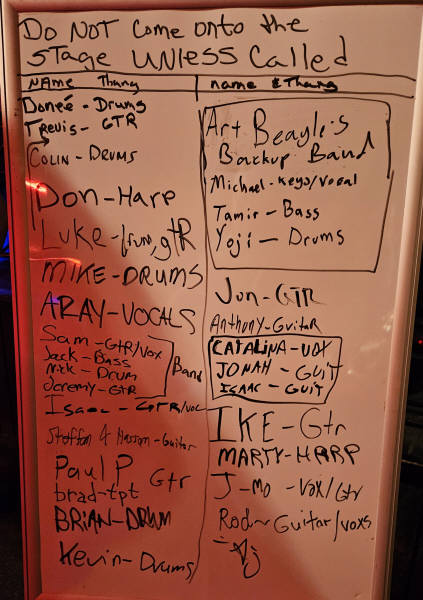 Do NOT Come onto the
STAGE UNLESS Called
NAME Thang
Doneé - Drums
Trevis - GTR
COLIN - DRUMS
Don - Harp
Luke - gtR
MIKE - DRUMS
ARAY - VOCALS
Sam - GTR/VOX
Jack - Bass
Nick - Drum
Jeremy - GTR
Band
Isaac - GTR/voc
Steffon & Hassan - Guitar
Paul P Gtr
brad - tpt
BRIAN - DRUM
Kevin - Drums
name & Thang
Art Beagle's
Backup Band
Michael - Keys/Vocal
Tamir - Bass
Yoji - Drums
Jon - GTR
Anthony - GuitaR
CATALINA - VOX
JONAH - GUIT
ISAAC - GUIT
IKE - Gtr
MARTY - HARP
J-mo - VOX/Gtr
Rod - Guitar/voxs